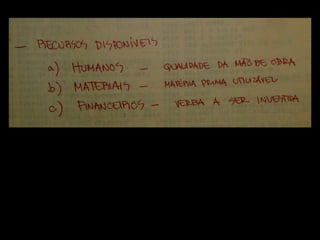 — RECURSOS DISPONÍVEIS
a) HUMANOS — QUALIDADE DA MÃO DE OBRA
b) MATERIAIS — MATÉRIA PRIMA UTILIZÁVEL
c) FINANCEIROS — VERBA A SER INVESTIDA